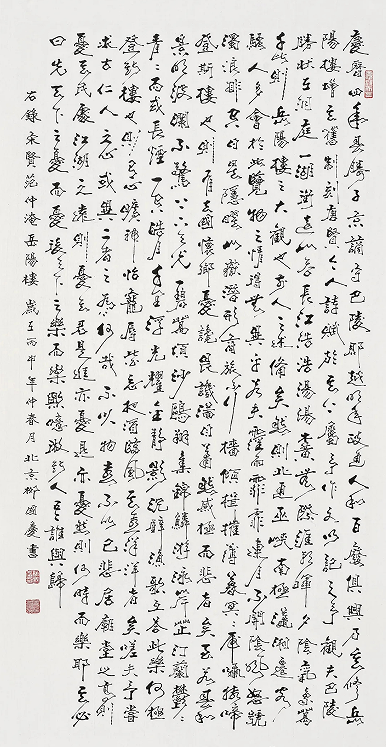 慶曆四年春滕子京謫守巴陵郡越明年政通人和百廢俱興乃重修岳
陽樓增其舊制刻唐賢今人詩賦於其上屬予作文以記之予觀夫巴陵
勝狀在洞庭一湖銜遠山吞長江浩浩湯湯橫無際涯朝暉夕陰氣象萬
千此則岳陽樓之大觀也前人之述備矣然則北通巫峽南極瀟湘遷客
騷人多會於此覽物之情得無異乎若夫霪雨霏霏連月不開陰風怒號
濁浪排空日星隱曜山嶽潛形商旅不行檣傾楫摧薄暮冥冥虎嘯猿啼
登斯樓也則有去國懷鄉憂讒畏譏滿目蕭然感極而悲者矣至若春和
景明波瀾不驚上下天光一碧萬頃沙鷗翔集錦鱗游泳岸芷汀蘭鬱鬱
青青而或長煙一空皓月千里浮光耀金靜影沉璧漁歌互答此樂何極
登斯樓也則有心曠神怡寵辱皆忘把酒臨風其喜洋洋者矣嗟夫予嘗
求古仁人之心或異二者之為何哉不以物喜不以己悲居廟堂之高則
憂其民處江湖之遠則憂其君是進亦憂退亦憂然則何時而樂耶其必
曰先天下之憂而憂後天下之樂而樂歟噫微斯人吾誰與歸
右錄宋賢范仲淹岳陽樓 歲在丙申年仲春月北京柳國慶書